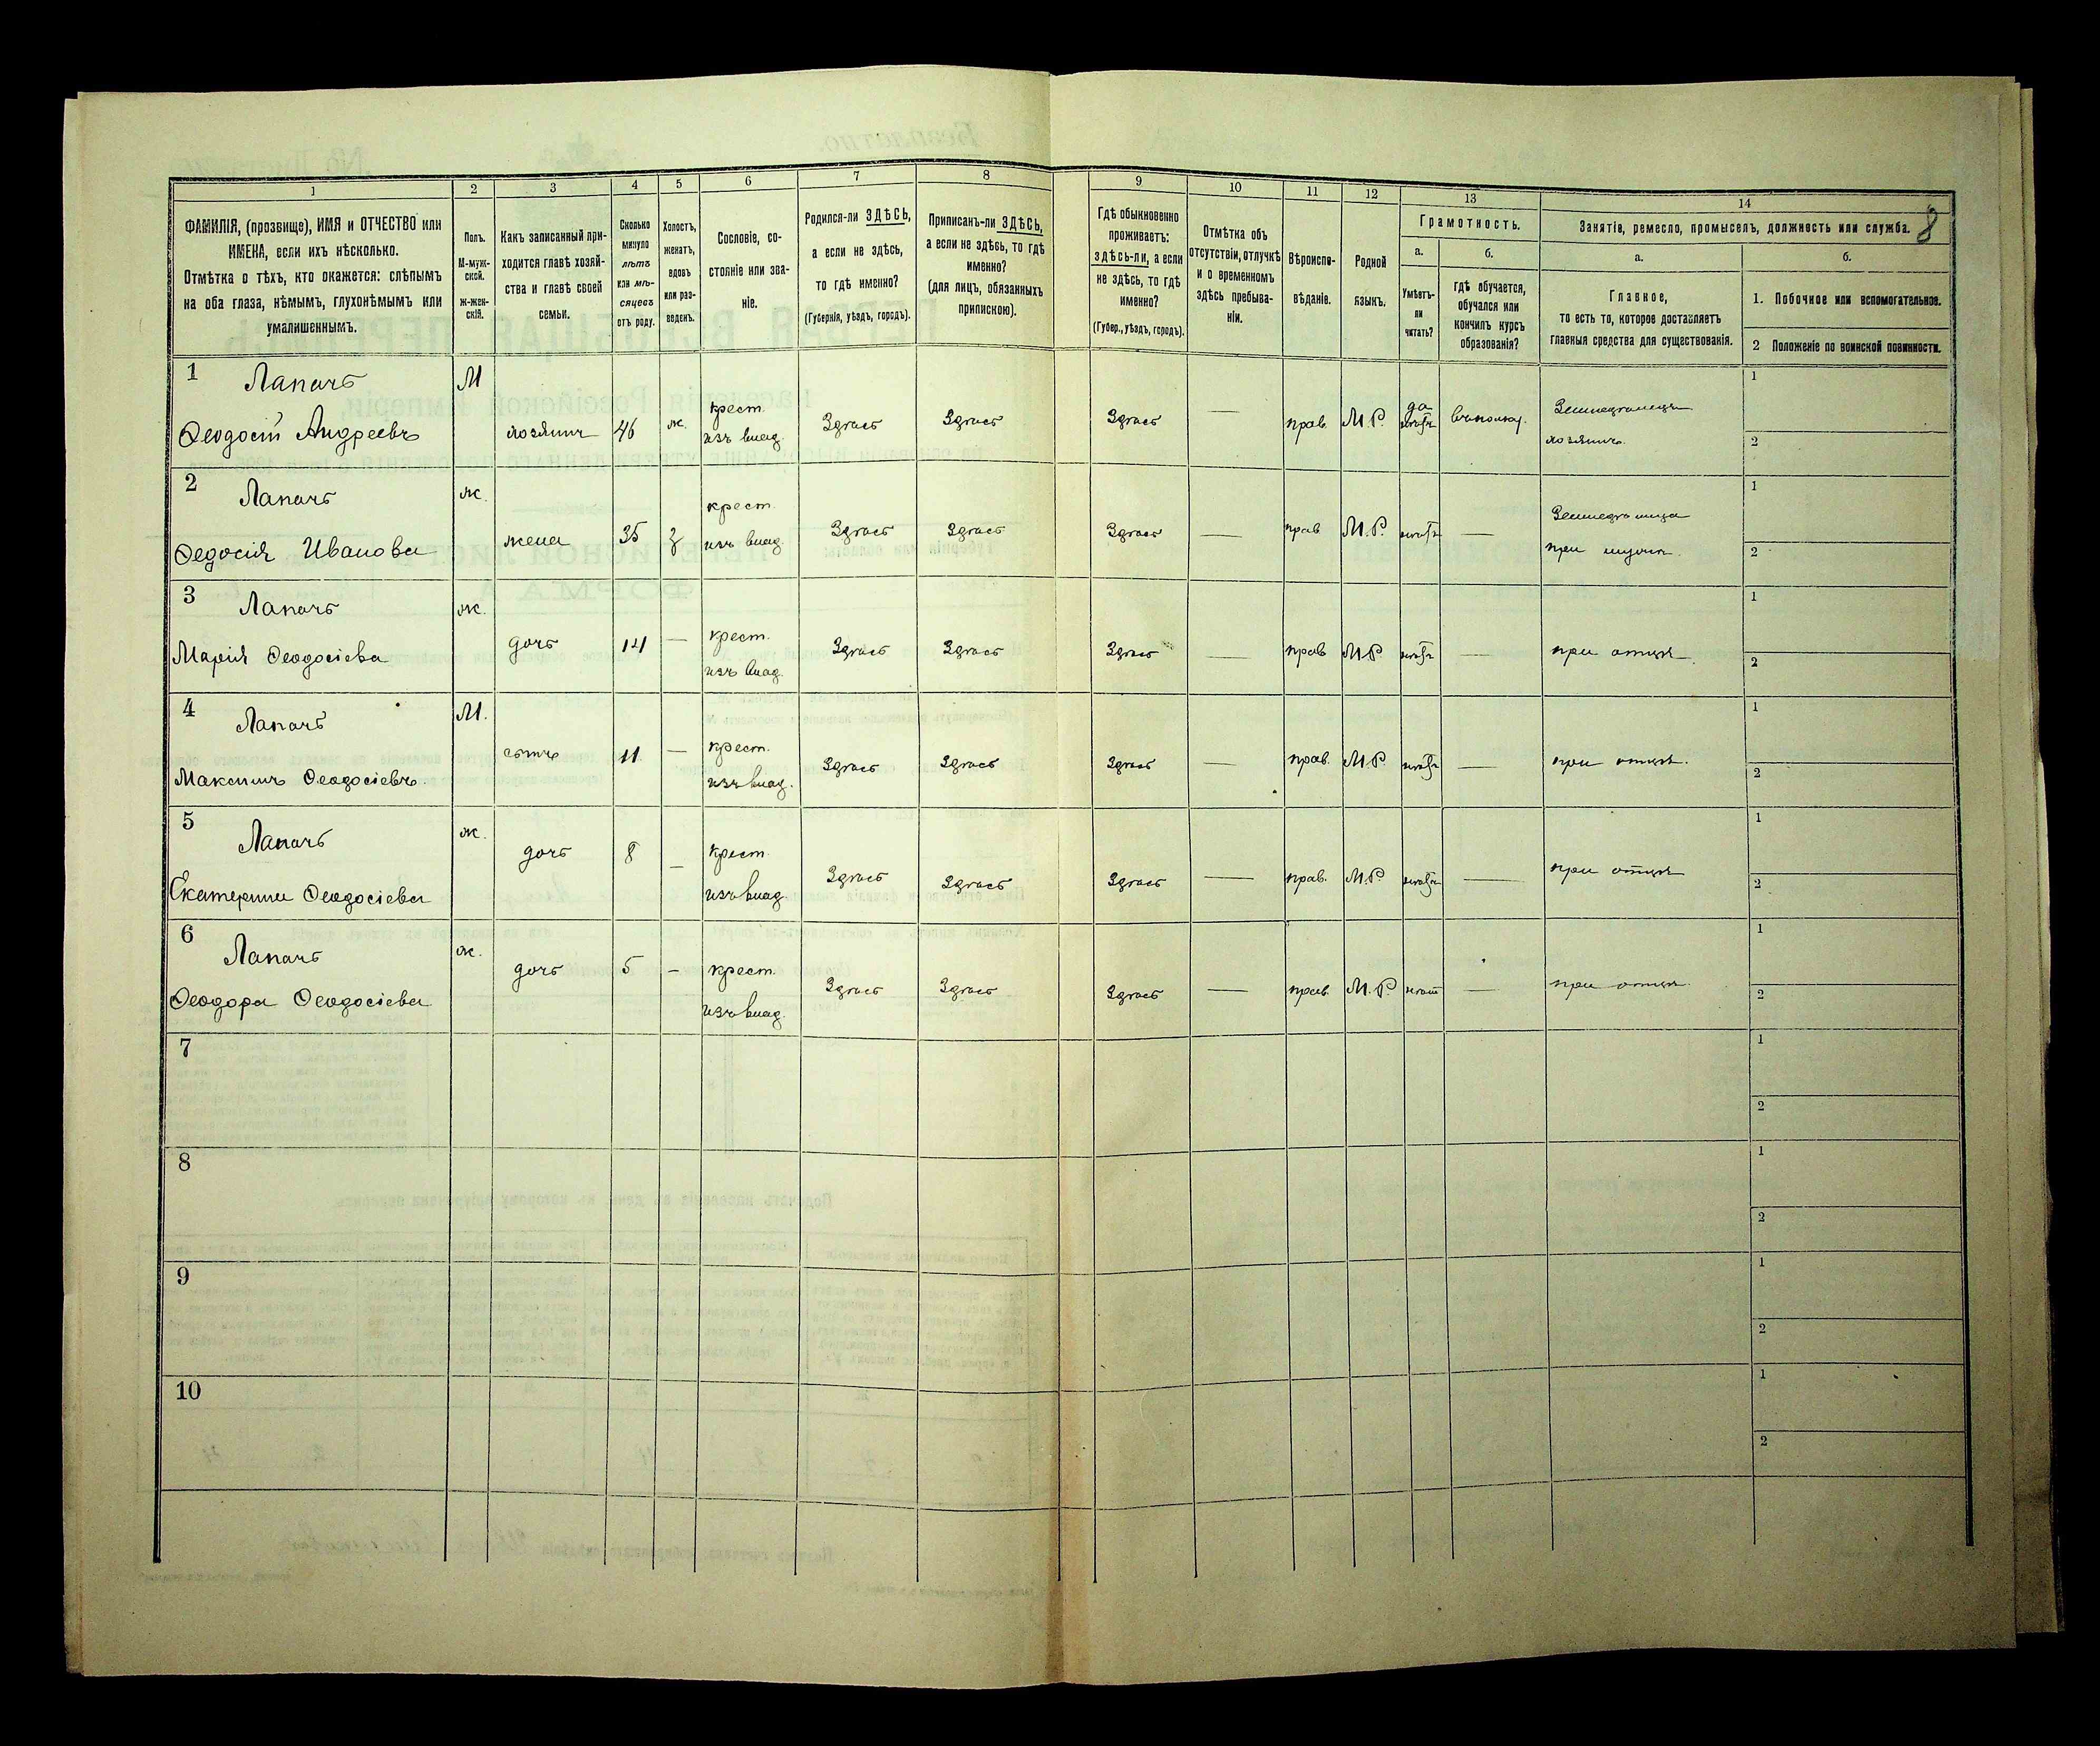 1 2 3 4 5 6 7 8 9 10 11 12 13 14
8
ФАМИЛІЯ, (прозвище), ИМЯ и ОТЧЕСТВО или
ИМЕНА, если ихъ нѣсколько.
Отмѣтка о тѣхъ, кто окажется: слѣпымъ
на оба глаза, нѣмымъ, глухонѣмымъ или
умалишеннымъ.
Полъ.
М-муж-
ской.
ж-жен-
скій.
Какъ записанный при-
ходится главѣ хозяй-
ства и главѣ своей
семьи.
Сколько
минуло
лѣтъ
или мѣ-
сяцевъ
отъ роду.
Холостъ,
женатъ,
вдовъ
или раз-
веденъ.
Сословіе, со-
стояніе или зва-
ніе.
Родился-ли ЗДѢСЬ,
а если не здѣсь,
то гдѣ именно?
(Губернія, уѣздъ, городъ).
Приписанъ-ли ЗДѢСЬ,
а если не здѣсь, то гдѣ
именно?
(для лицъ, обязанныхъ
припискою).
Гдѣ обыкновенно
проживаетъ:
здѣсь-ли, а если
не здѣсь, то гдѣ
именно?
(Губер., уѣздъ, городъ).
Отмѣтка объ
отсутствіи, отлучкѣ
и о временномъ
здѣсь пребыва-
ніи.
Вѣроиспо-
вѣданіе.
Родной
языкъ.
Грамотность.
а.
Умѣетъ-
ли
читать?
б.
гдѣ обучается,
обучался или
кончилъ курсъ
образованія?
Занятіе, ремесло, промыселъ, должность или служба.
а.
Главное,
то есть то, которое доставляетъ
главныя средства для существованія.
б.
1. Побочное или вспомогательное.
2 Положеніе по воинской повинности.
1 Лапачъ М крест. да Земледѣлецъ 1
Феодосій Андреевъ хозяинъ 46 ж. изъ влад. Здѣсь Здѣсь Здѣсь — прав. М.Р. хозяинъ. 2
2 Лапачъ ж. крест. Земледѣлица 1
Федосія Иванова жена 35 з изъ влад. Здѣсь Здѣсь Здѣсь — прав. М.Р. нѣтъ — при мужѣ. 2
3 Лапачъ ж. крест. 1
Марія Феодосіева дочь 14 — изъ влад. Здѣсь Здѣсь Здѣсь — прав. М.Р. нѣтъ — при отцѣ. 2
4 Лапачъ М. крест. 1
Максимъ Феодосіевъ. сынъ 11 — изъ влад. Здѣсь Здѣсь Здѣсь — прав. М.Р. нѣтъ — при отцѣ. 2
5 Лапачъ ж. крест. 1
Екатерина Феодосіева дочь 8 — изъ влад. Здѣсь Здѣсь Здѣсь — прав. М.Р. нѣтъ — при отцѣ 2
6 Лапачъ ж. крест. 1
Феодора Феодосіева дочь 5 — изъ влад. Здѣсь Здѣсь Здѣсь — прав. М.Р. нѣтъ — при отцѣ. 2
7 1
2
8 1
2
9 1
2
10 1
2